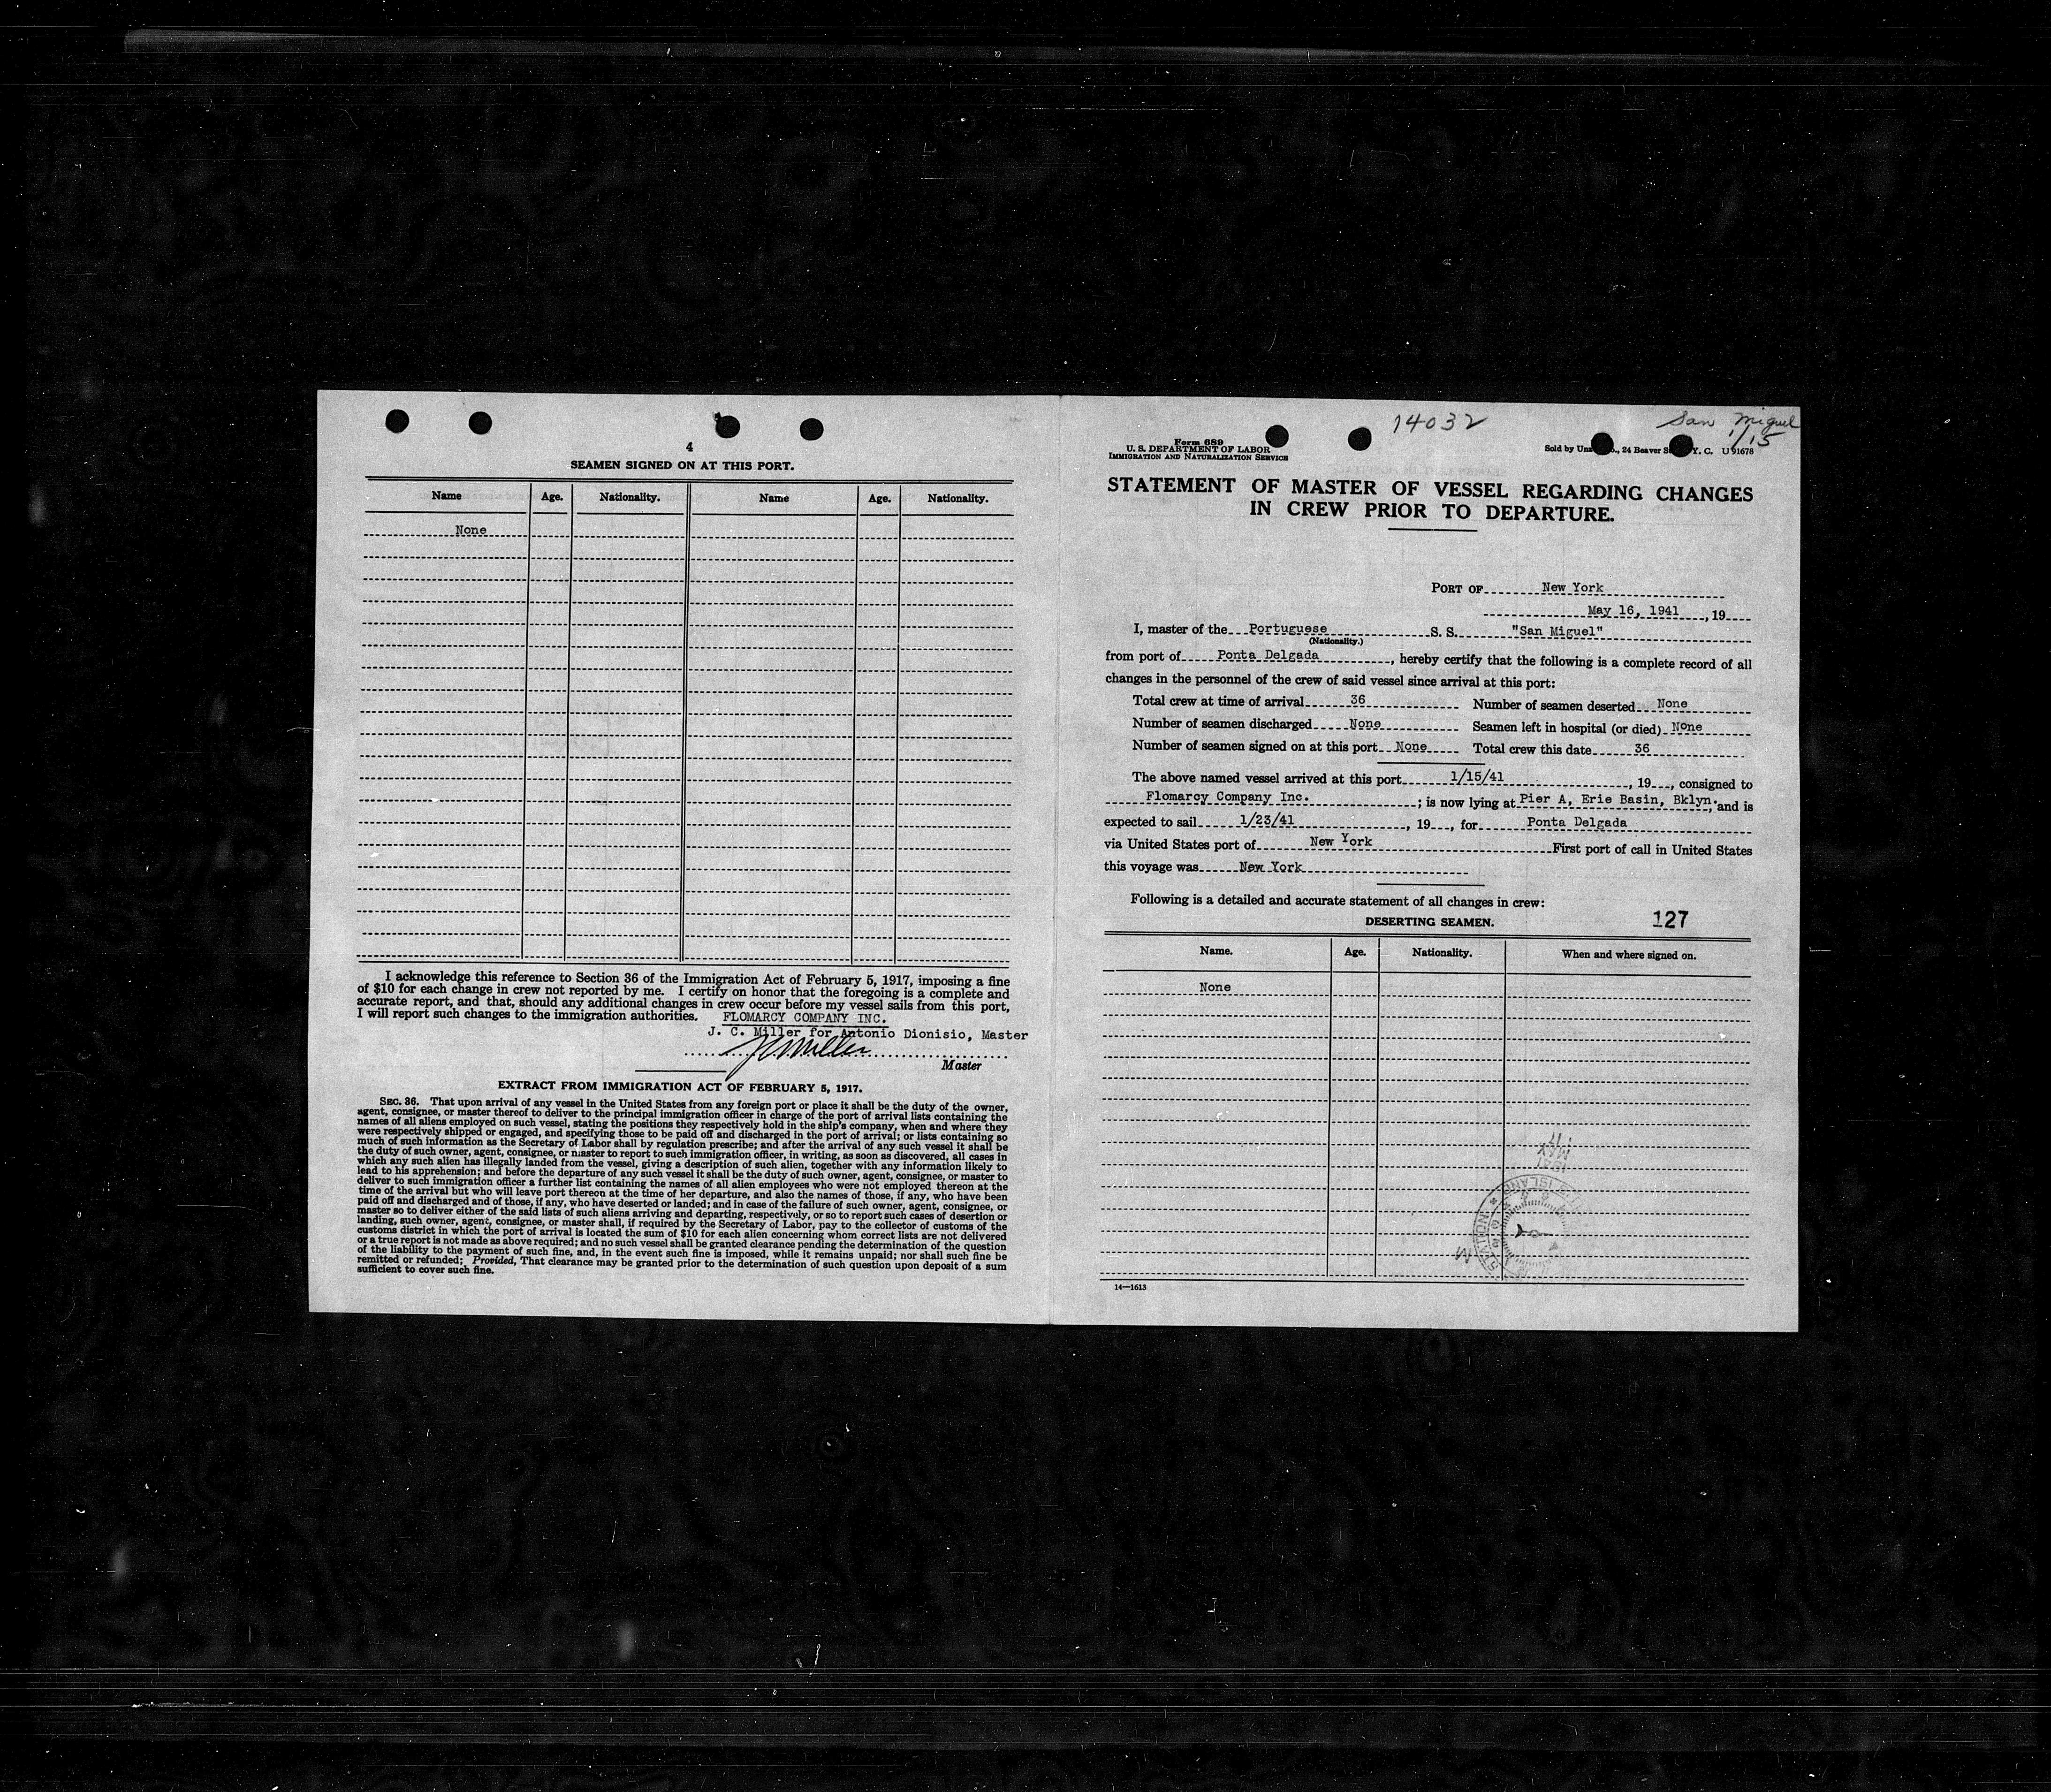 4
SEAMEN SIGNED ON AT THIS PORT.
Name Age. Nationality. Name Age. Nationality.
None
I acknowledge this reference to Section 36 of the Immigration Act of February 5, 1917, imposing a fine
of $10 for each change in crew not reported by me. I certify on honor that the foregoing is a complete and
accurate report, and that, should any additional changes in crew occur before my vessel sails from this port,
I will report such changes to the immigration authorities. FLOMARCY COMPANY INC.
J. C. Miller for Antonio Dionisio, Master
JCMiller
Master
EXTRACT FROM IMMIGRATION ACT OF FEBRUARY 5, 1917.
SEC. 36. That upon arrival of any vessel in the United States from any foreign port or place it shall be the duty of the owner,
agent, consignee, or master thereof to deliver to the principal immigration officer in charge of the port of arrival lists containing the
names of all aliens employed on such vessel, stating the positions they respectively hold in the ship's company, when and where they
were respectively shipped or engaged, and specifying those to be paid off and discharged in the port of arrival; or lists containing so
much of such information as the Secretary of Labor shall by regulation prescribe; and after the arrival of any such vessel it shall be
the duty of such owner, agent, consignee, or master to report to such immigration officer, in writing, as soon as discovered, all cases in
which any such alien has illegally landed from the vessel, giving a description of such alien, together with any information likely to
lead to his apprehension; and before the departure of any such vessel it shall be the duty of such owner, agent, consignee, or master to
deliver to such immigration officer a further list containing the names of all alien employees who were not employed thereon at the
time of the arrival but who will leave port thereon at the time of her departure, and also the names of those, if any, who have been
paid off and discharged and of those, if any, who have deserted or landed; and in case of the failure of such owner, agent, consignee, or
master so to deliver either of the said lists of such aliens arriving and departing, respectively, or so to report such cases of desertion or
landing, such owner, agent, consignee, or master shall, if required by the Secretary of Labor, pay to the collector of customs of the
customs district in which the port of arrival is located the sum of $10 for each alien concerning whom correct lists are not delivered
or a true report is not made as above required; and no such vessel shall be granted clearance pending the determination of the question
of the liability to the payment of such fine, and, in the event such fine is imposed, while it remains unpaid; nor shall such fine be
remitted or refunded; Provided, That clearance may be granted prior to the determination of such question upon deposit of a sum
sufficient to cover such fine.
14032
San Miguel
1/15
Form 689
U. S. DEPARTMENT OF LABOR
IMMIGRATION AND NATURALIZATION SERVICE
Sold by Unz o., 24 Beaver S Y. C. U 91678
STATEMENT OF MASTER OF VESSEL REGARDING CHANGES
IN CREW PRIOR TO DEPARTURE.
PORT OF New York
May 16, 1941, 19
I, master of the Portuguese S. S. "San Miguel"
(Nationality.)
from port of Ponta Delgada, hereby certify that the following is a complete record of all
changes in the personnel of the crew of said vessel since arrival at this port:
Total crew at time of arrival 36 Number of seamen deserted None
Number of seamen discharged None Seamen left in hospital (or died) None
Number of seamen signed on at this port None Total crew this date 36
The above named vessel arrived at this port 1/15/41, 19, consigned to
Flomarcy Company Inc.; is now lying at Pier A, Erie Basin, Bklyn. and is
expected to sail 1/23/41, 19, for Ponta Delgada
via United States port of New York First port of call in United States
this voyage was New York
Following is a detailed and accurate statement of all changes in crew:
DESERTING SEAMEN. 127
Name. Age. Nationality. When and where signed on.
None
MAY
1941
14—1613